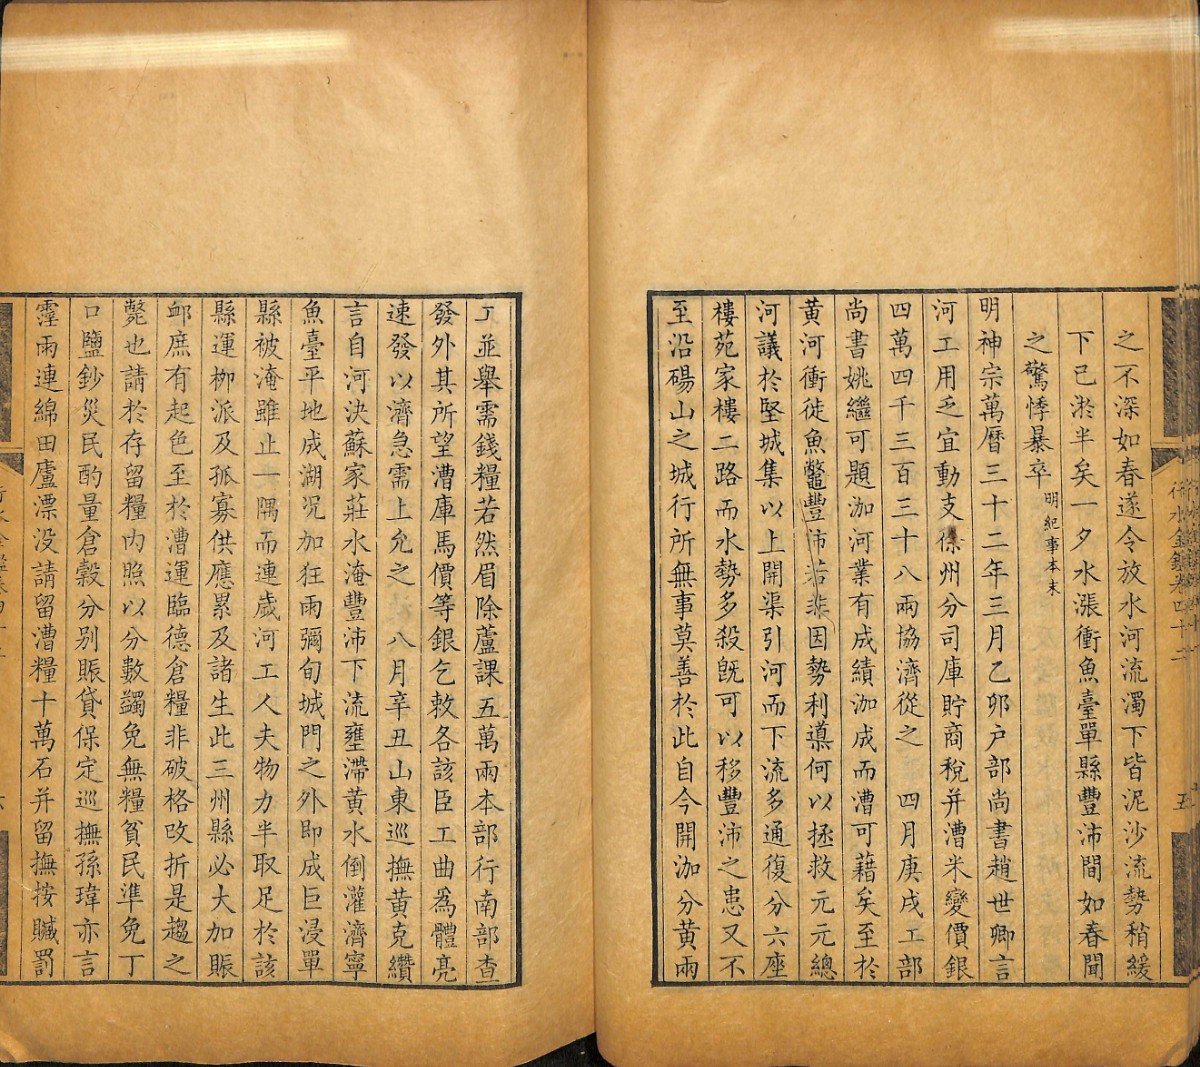 之不深如春遂令放水河流濁下皆泥沙流勢稍緩
下已淤半矣一夕水漲衝魚臺單縣豐沛間如春聞
之驚悸暴卒明紀事本末
明神宗萬曆三十二年三月乙卯户部尚書趙世卿言
河工用乏宜動支徐州分司庫貯商稅并漕米變價銀
四萬四千三百三十八兩協濟從之　四月庚戌工部
尚書姚繼可題泇河業有成績泇成而漕可藉矣至於
黄河衝徙魚鼈豐沛若非因勢利導何以拯救元元總
河議於堅城集以上開渠引河而下流多通復分六座
樓苑家樓二路而水勢多殺旣可以移豐沛之患又不
至沿碭山之城行所無事莫善於此自今開泇分黄兩
工並舉需錢糧若然眉除蘆課五萬兩本部行南部查
發外其所望漕庫馬價等銀乞敕各該臣工曲爲體亮
速發以濟急需上允之　八月辛丑山東巡撫黄克纘
言自河決蘇家莊水淹豐沛下流壅滯黄水倒灌濟寧
魚臺平地成湖況加狂雨彌旬城門之外即成巨浸單
縣被淹雖止一隅而連歲河工人夫物力半取足於該
縣運栁派及孤寡供應累及諸生此三州縣必大加賑
邺庶有起色至於漕運臨德倉糧非破格改折是趨之
斃也請於存留糧内照以分數蠲免無糧貧民準免丁
口鹽鈔災民酌量倉穀分别賑貸保定巡撫孫瑋亦言
霪雨連綿田廬漂没請留漕糧十萬石并留撫按贓罰
行水金鑑卷四十二
五